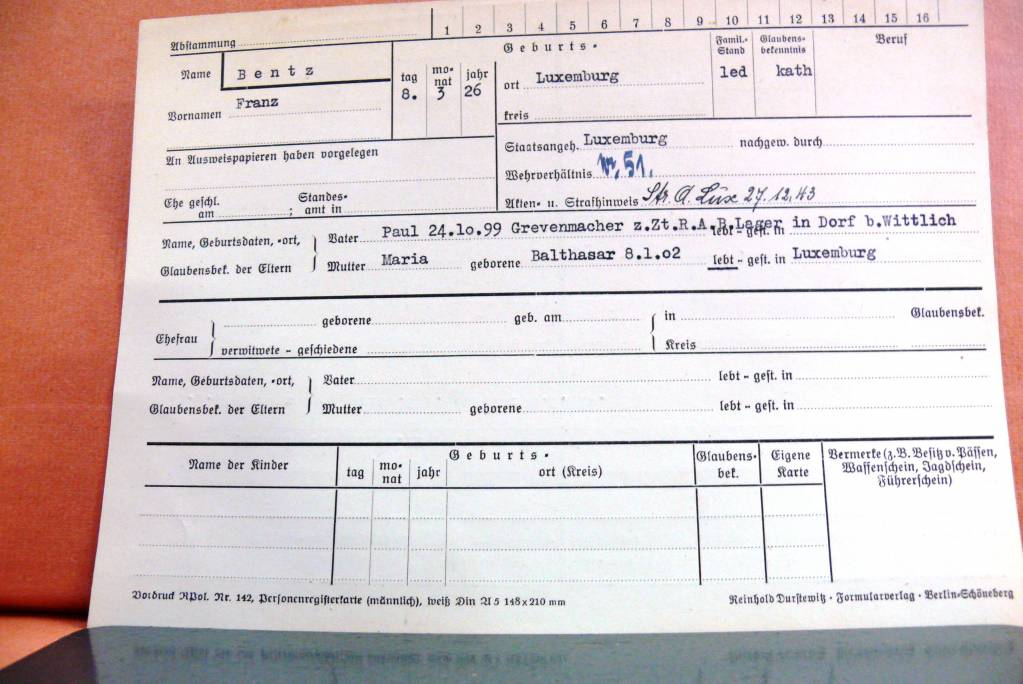 1 2 3 4 5 6 7 8 9 10 11 12 13 14 15 16
Abstammung
Name Bentz
Vornamen Franz
tag monat jahr
8. 3 26
Geburts-
ort Luxemburg
kreis
Famil.-Stand led
Glaubens-bekenntnis kath
Beruf
An Ausweispapieren haben vorgelegen
Staatsangeh. Luxemburg nachgew. durch
Wehrverhältnis 51.
Ehe geschl. am ; Standes-amt in
Akten- u. Strafhinweis Str. A. Lux 27.12.43
Name, Geburtsdaten, -ort, Vater Paul 24.10.99 Grevenmacher z.Zt.R.A.B.Lager in Dorf b.Wittlich lebt - gest. in
Glaubensbek. der Eltern Mutter Maria geborene Balthasar 8.1.02 lebt - gest. in Luxemburg
Ehefrau geborene geb. am in Glaubensbek.
verwitwete - geschiedene Kreis
Name, Geburtsdaten, -ort, Vater lebt - gest. in
Glaubensbek. der Eltern Mutter geborene lebt - gest. in
Name der Kinder
Geburts-
tag monat jahr ort (Kreis)
Glaubens-bek.
Eigene Karte
Vermerke (z.B. Besitz v. Pässen,
Waffenschein, Jagdschein,
Führerschein)
Vordruck RPol. Nr. 142, Personenregisterkarte (männlich), weiß Din A 5 148 x 210 mm
Reinhold Durstewitz · Formularverlag · Berlin-Schöneberg